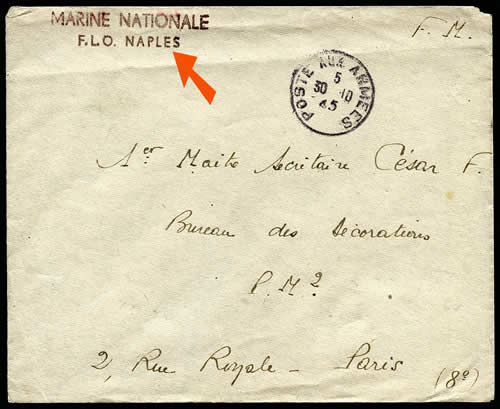 MARINE NATIONALE
F.L.O. NAPLES
F. M.
POSTE AUX ARMÉES
5
30 -10
45
1er Maitre Secrétaire César F.
Bureau des Décorations
P.M2
2, Rue Royale - Paris
(8e)